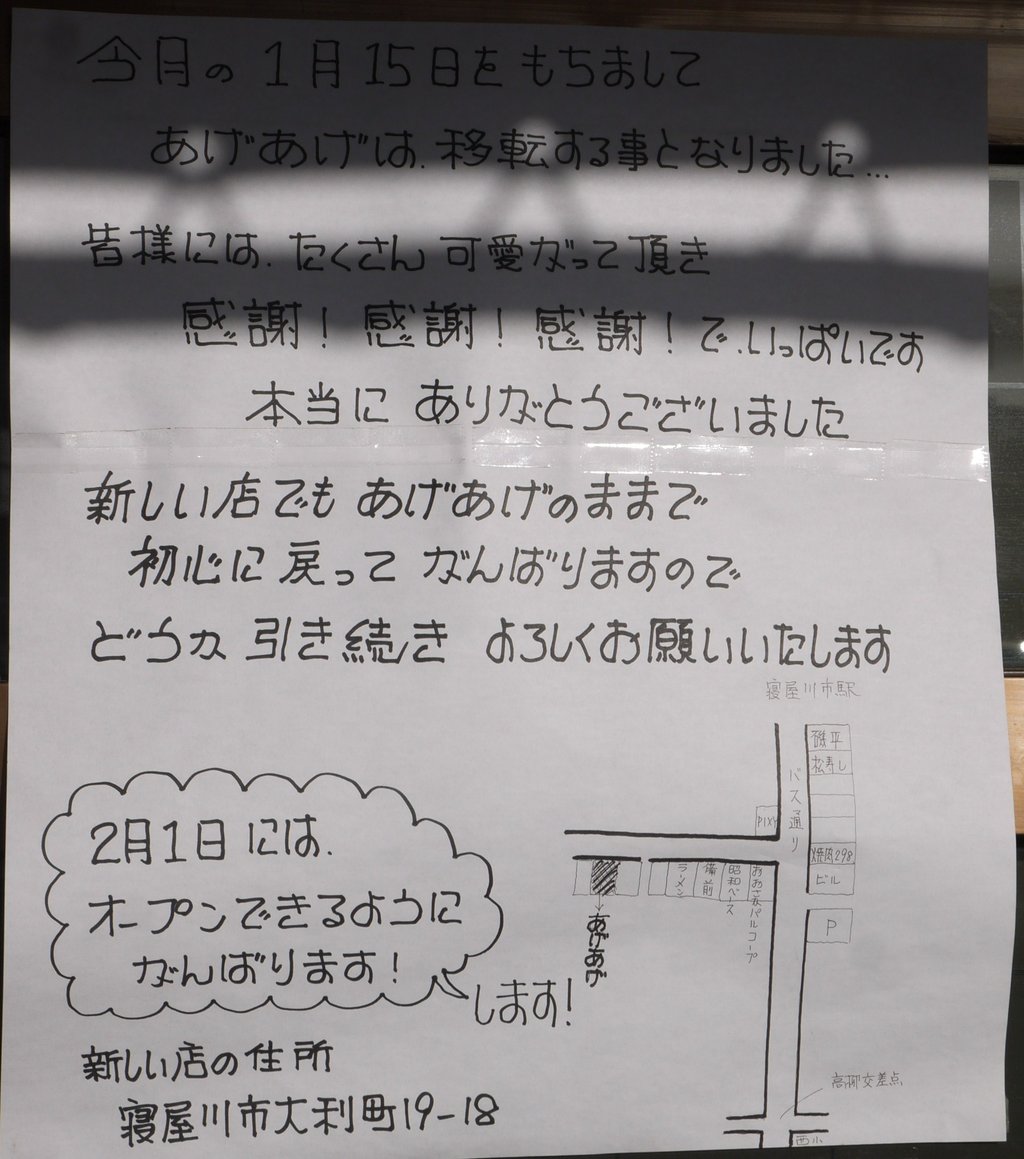 今月の1月15日をもちまして
あげあげは、移転する事となりました…
皆様には、たくさん可愛がって頂き
感謝！感謝！感謝！で、いっぱいです
本当に ありがとうございました
新しい店でも あげあげのままで
初心に戻って がんばりますので
どうか 引き続き よろしくお願いいたします
寝屋川市駅
磯平
松寿し
バス通り
PIXY
焼肉298
ビル
ラーメン
備前
昭和ベース
おおさかパルコープ
P
あげあげ
2月1日には、
オープンできるように
がんばります！
します！
高柳交差点
西小
新しい店の住所
寝屋川市大利町19-18